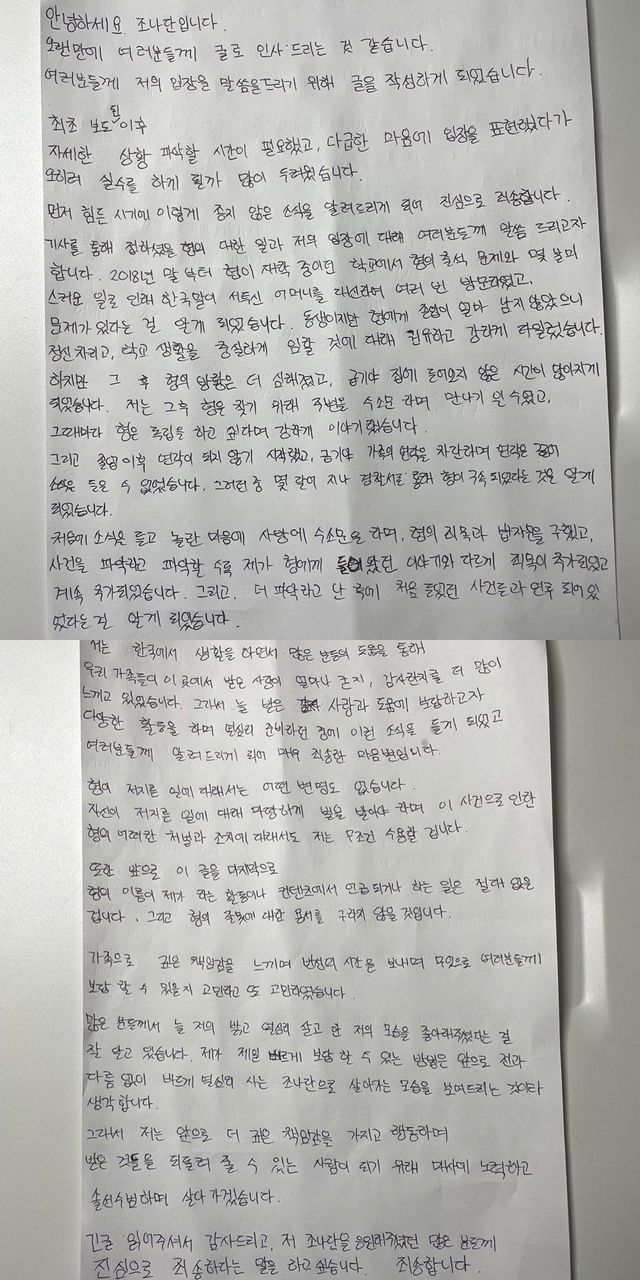 안녕하세요 조나단입니다.
오랜만에 여러분들께 글로 인사드리는 것 같습니다.
여러분들께 저의 입장을 말씀을드리기 위해 글을 작성하게 되었습니다.
최초 보도된 이후
자세한 상황 파악할 시간이 필요했고, 다급한 마음에 입장을 표현하였다가
오히려 실수를 하게 될까 많이 두려웠습니다.
먼저 힘든 시기에 이렇게 좋지 않은 소식을 알려드리게 되어 진심으로 죄송합니다.
기사를 통해 접하셨을 형에 대한 일과 저의 입장에 대해 여러분들께 말씀 드리고자
합니다. 2018년 말 부터 형이 재학 중이던 학교에서 형의 출석 문제와 몇 불미
스러운 일로 인해 한국말이 서툴신 어머니를 대신하여 여러 번 방문하였고,
문제가 있다는 걸 알게 되었습니다. 동생이지만 형에게 졸업이 얼마 남지 않았으니
정신 차리고, 학교 생활을 충실하게 임할 것에 대해 권유하고 강하게 타일렀습니다.
하지만 그 후 형의 상황은 더 심해졌고, 급기야 집에 들어오지 않은 시간이 많아지게
되었습니다. 저는 그후 형을 찾기 위해 주변을 수소문 하며 만나기 일 수였고,
그때마다 형은 독립을 하고 싶다며 강하게 이야기했습니다.
그리고 졸업 이후 연락이 되지 않기 시작했고, 급기야 가족의 연락을 차단하며 연락은
소식은 들을 수 없었습니다. 그러던 중 몇 달이 지나 경찰서를 통해 형이 구속 되었다는 것을 알게
되었습니다.
처음에 소식을 듣고 놀란 마음에 사방에 수소문을 하며, 형의 죄목과 범죄들을 구했고,
사건을 파악하고 파악할 수록 제가 형에게 들어왔던 이야기와 다르게 죄목이 추가되었고
계속 추가되었습니다. 그리고, 더 파악하고 난 후에 처음 들었던 사건들과 연루 되어있
었다는 걸 알게 되었습니다.
저는 한국에서 생활을 하면서 많은 분들의 도움을 통해
우리 가족들이 이 곳에서 받은 사랑이 얼마나 큰지, 감사한지를 더 많이
느끼고 있었습니다. 그래서 늘 받은 사랑과 도움에 보답하고자
다양한 활동을 하며 열심히 준비하던 중에 이런 소식을 듣게 되었고
여러분들께 알려드리게 되어 매우 죄송한 마음뿐입니다.
형이 저지른 일에 대해서는 어떤 변명도 없습니다.
자신이 저지른 일에 대해 마땅하게 벌을 받아야 하며 이 사건으로 인한
형의 어떠한 처벌과 조치에 대해서도 저는 무조건 수용할 겁니다.
또한 앞으로 이 글을 마지막으로
형의 이름이 제가 하는 활동이나 컨텐츠에서 언급되거나 하는 일은 절대 없을
겁니다. 그리고 형의 잘못에 대한 용서를 구하지 않을 것입니다.
가족으로 깊은 책임감을 느끼며 반성의 시간을 보내며 무엇으로 여러분들께
보답 할 수 있을지 고민하고 또 고민하였습니다.
많은 분들께서 늘 저의 밝고 열심히 살고 한 저의 모습을 좋아해주셨다는 걸
잘 알고 있습니다. 제가 제일 바르게 보답 할 수 있는 방법은 앞으로 전과
다름 없이 바르게 열심히 사는 조나단으로 살아가는 모습을 보여드리는 것이라
생각합니다.
그래서 저는 앞으로 더 깊은 책임감을 가지고 행동하며
받은 것들을 되돌려 줄 수 있는 사람이 되기 위해 매사에 노력하고
솔선수범하며 살아 가겠습니다.
긴글 읽어주셔서 감사드리고, 저 조나단을 응원해주셨던 많은 분들께
진심으로 죄송하다는 말을 하고 싶습니다. 죄송합니다.